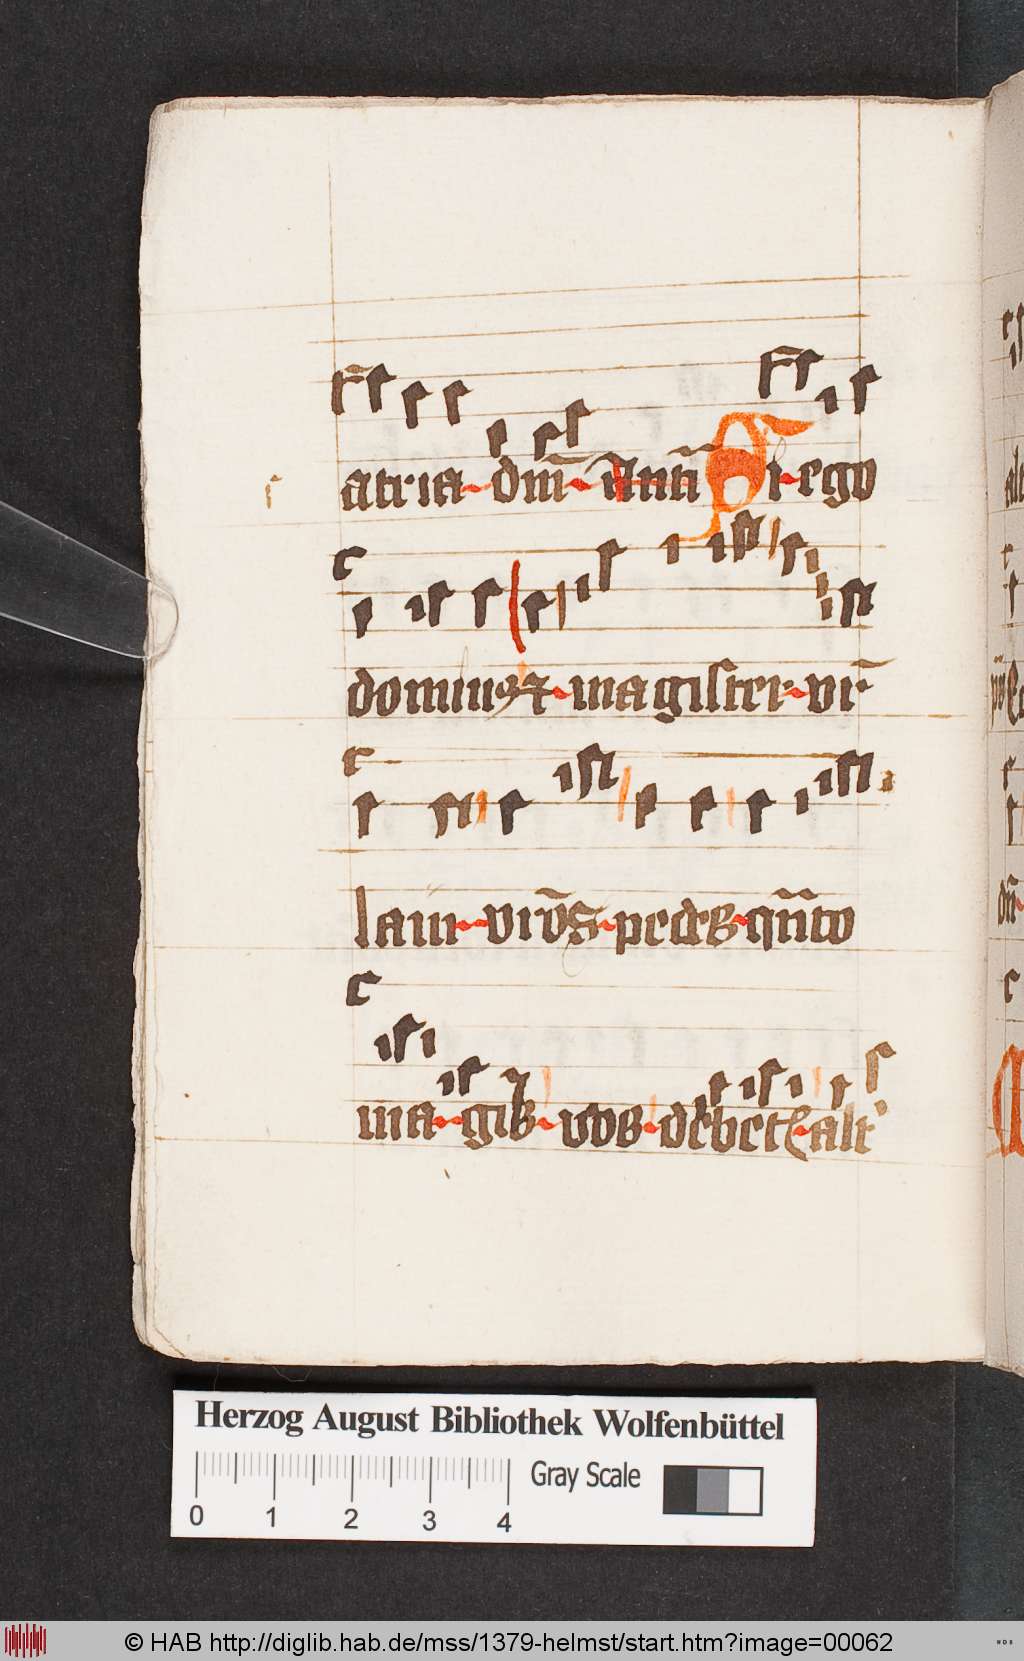 atria · dm̄ · Antī Si · ego
dominꝰ ⁊ · magister · vr̄
laui · vrōs · pedes · qn̄to
ma · gis · vos · debetꝭ · alt᾽
Herzog August Bibliothek Wolfenbüttel
0 1 2 3 4 Gray Scale
© HAB http://diglib.hab.de/mss/1379-helmst/start.htm?image=00062